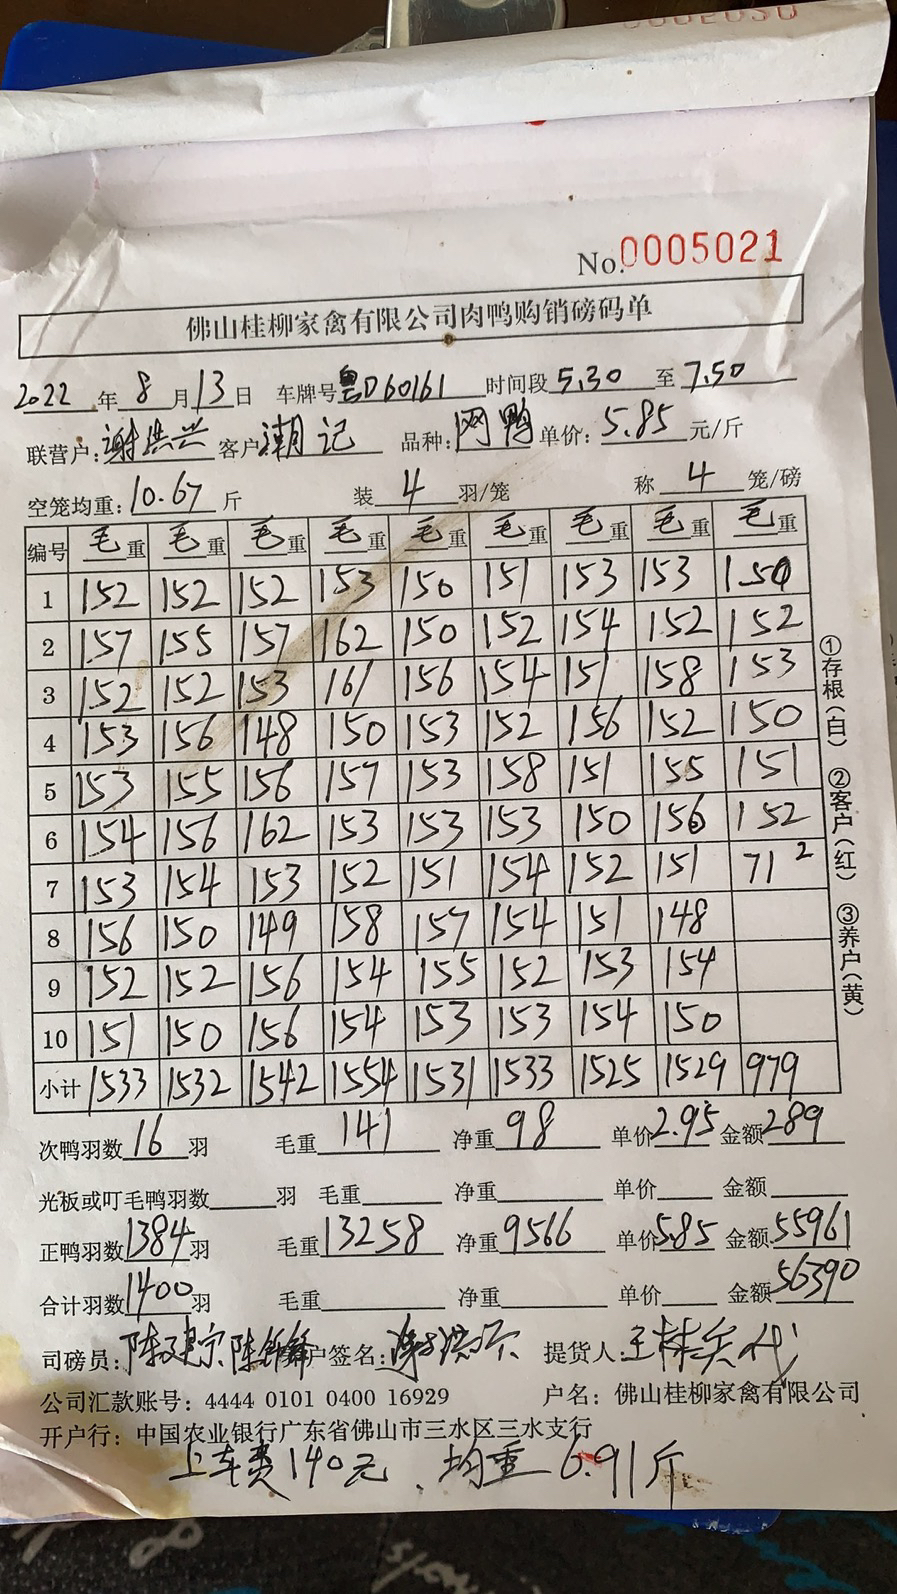 No.0005021
佛山桂柳家禽有限公司肉鸭购销磅码单
2022年8月13日 车牌号粤D60161 时间段5.30至7.50
联营户:谢洪兴 客户潮记 品种:网鸭 单价:5.85元/斤
空笼均重:10.67斤 装4羽/笼 称4笼/磅
编号 毛重 毛重 毛重 毛重 毛重 毛重 毛重 毛重 毛重
1 152 152 152 153 150 151 153 153 150
2 157 155 157 162 150 152 154 152 152
3 152 152 153 161 156 154 151 158 153
4 153 156 148 150 153 152 156 152 150
5 153 155 156 157 153 158 151 155 151
6 154 156 162 153 153 153 150 156 152
7 153 154 153 152 151 154 152 151 71 2
8 156 150 149 158 157 154 151 148
9 152 152 156 154 155 152 153 154
10 151 150 156 154 153 153 154 150
小计 1533 1532 1542 1554 1531 1533 1525 1529 979
①存根(白) ②客户(红) ③养户(黄)
次鸭羽数16羽 毛重141 净重98 单价2.95 金额289
光板或叮毛鸭羽数 羽 毛重 净重 单价 金额
正鸭羽数1384羽 毛重13258 净重9566 单价5.85 金额55961
合计羽数1400羽 毛重 净重 单价 金额56390
司磅员: 户签名: 提货人:代
公司汇款账号: 4444 0101 0400 16929 户名: 佛山桂柳家禽有限公司
开户行: 中国农业银行广东省佛山市三水区三水支行
上车费140元、均重6.91斤